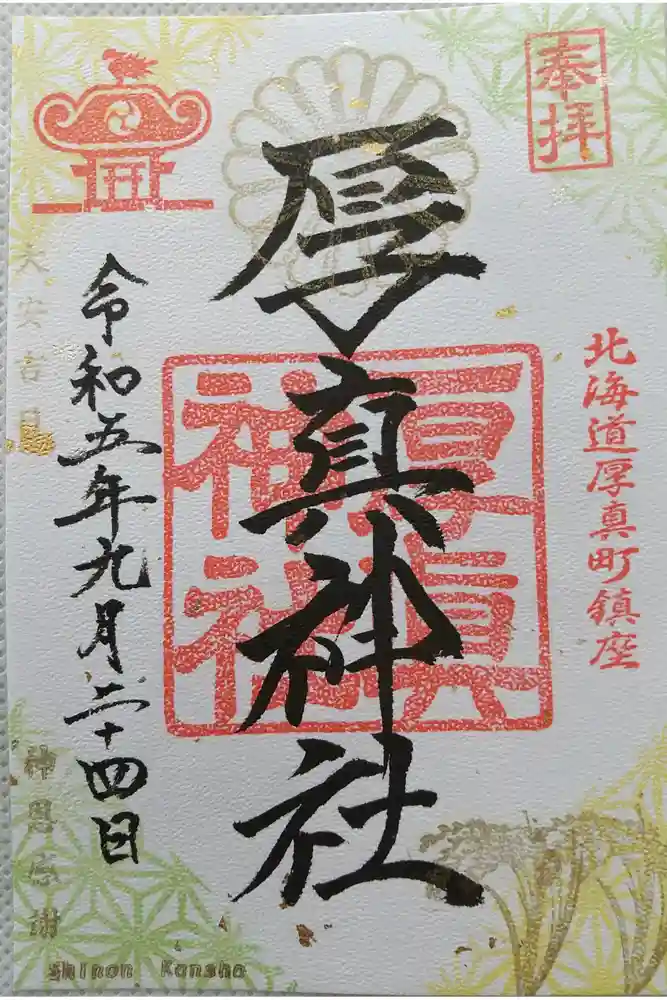 奉拝
北海道厚真町鎮座
厚真神社
厚真神社
令和五年九月二十四日
大安吉日
神恩感謝
Shinon Kansha